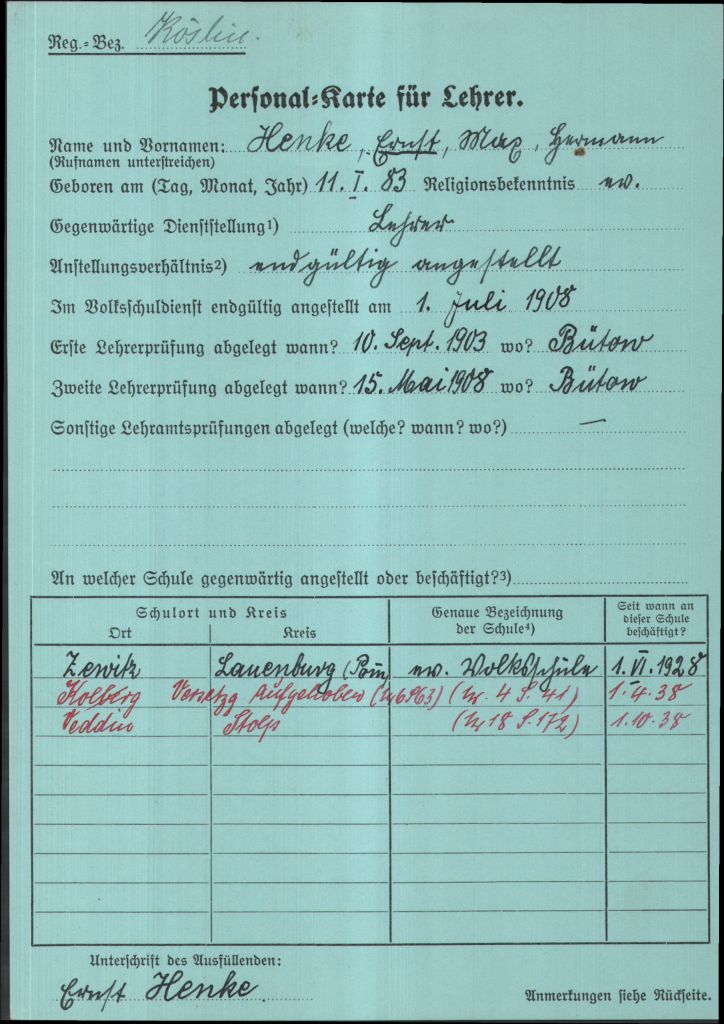 Reg.-Bez. Köslin.
Personal-Karte für Lehrer.
Name und Vornamen: Henke, Ernst, Max, Hermann
(Rufnamen unterstreichen)
Geboren am (Tag, Monat, Jahr) 11. I. 83 Religionsbekenntnis ev.
Gegenwärtige Dienststellung1) Lehrer
Anstellungsverhältnis2) endgültig angestellt
Im Volksschuldienst endgültig angestellt am 1. Juli 1908
Erste Lehrerprüfung abgelegt wann? 10. Sept. 1903 wo? Bütow
Zweite Lehrerprüfung abgelegt wann? 15. Mai 1908 wo? Bütow
Sonstige Lehramtsprüfungen abgelegt (welche? wann? wo?) —
An welcher Schule gegenwärtig angestellt oder beschäftigt?3)
Schulort und Kreis
Ort Kreis
Genaue Bezeichnung
der Schule4)
Seit wann an
dieser Schule
beschäftigt?
Zewitz Lauenburg (Pom) ev. Volksschule 1. VI. 1928
Kolberg Versetzg aufgehoben (4 S. 41) 1.4.38
Veddin Stolp (18 S. 172) 1.10.38
Unterschrift des Ausfüllenden:
Ernst Henke
Anmerkungen siehe Rückseite.